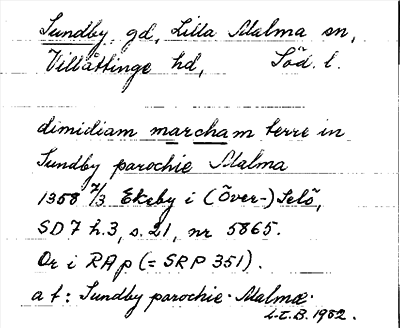 Sundby gd, Lilla Malma sn,
Villåttinge hd, Söd. l.
dimidiam marcham terre in
Sundby parochie Malma
1358 7/3 Ekeby i (Över-)Selö,
SD 7 h.3, s. 21, nr 5865.
Or i RAp (= SRP 351).
a t: Sundby parochie Malmæ
L.T.B. 1952.